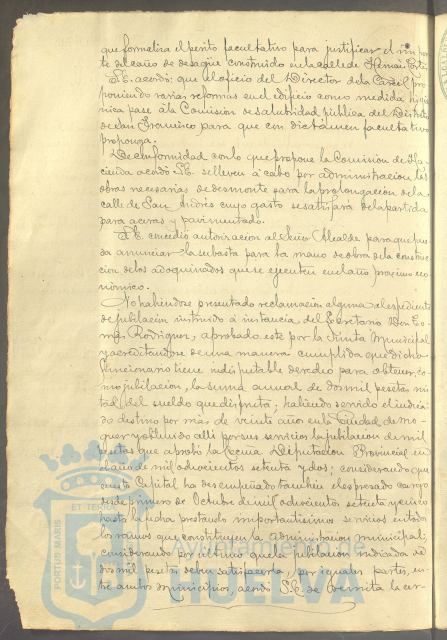 que formaliza el perito facultativo para justificar el impor
te del caño de desagüe construido en la calle de Hernán Cortés
S.E. acordó: que el oficio del Director de la Cárcel, pro
poniendo varias reformas en el edificio como medida higié
nica pase á la Comision de salubridad pública del Distrito
de San Francisco para que con dictamen facultativo
proponga.
De conformidad con lo que propone la Comision de Ha
cienda acordó S.E. se lleven á cabo por administracion, las
obras necesarias de desmonte para la prolongacion de la
calle de San Andrés cuyo gasto se satisfará de la partida
para aceras y pavimentado.
S.E. concedió autorizacion al Señor Alcalde para que pue
da anunciar la subasta para la mano de obra de la construc
cion de los adoquinados que se ejecuten en el año proximo eco
nómico.
No habiendose presentado reclamacion alguna al espediente
de jubilacion instruido á instancia del Secretario Don
Rodriguez, aprobado este por la Junta Municipal
y acreditandose de una manera cumplida que dicho
funcionario tiene indisputable derecho para obtener, co
mo jubilacion, la suma anual de dos mil pesetas mi
tad del sueldo que disfruta; habiendo servido el indica
do destino por más de veinte años en la Ciudad de Mo
guer y obtenido allí por sus servicios la jubilacion de mil
pesetas que aprobó la Excma Diputacion Provincial en
el año de mil ochocientos setenta y dos; considerando que
en esta Capital ha desempeñado tambien el espresado cargo
desde primero de Octubre de mil ochocientos setenta y cinco
hasta la fecha prestando importantisimos servicios en todos
los ramos que constituyen la administracion municipal;
considerando por último que la jubilacion indicada de
dos mil pesetas deben satisfacerla, por iguales partes, en
tre ambos municipios, acordó S.E. se remita la cer-
PORTUS MARIS
ET TERRAE
Ayuntamiento de
HUELVA